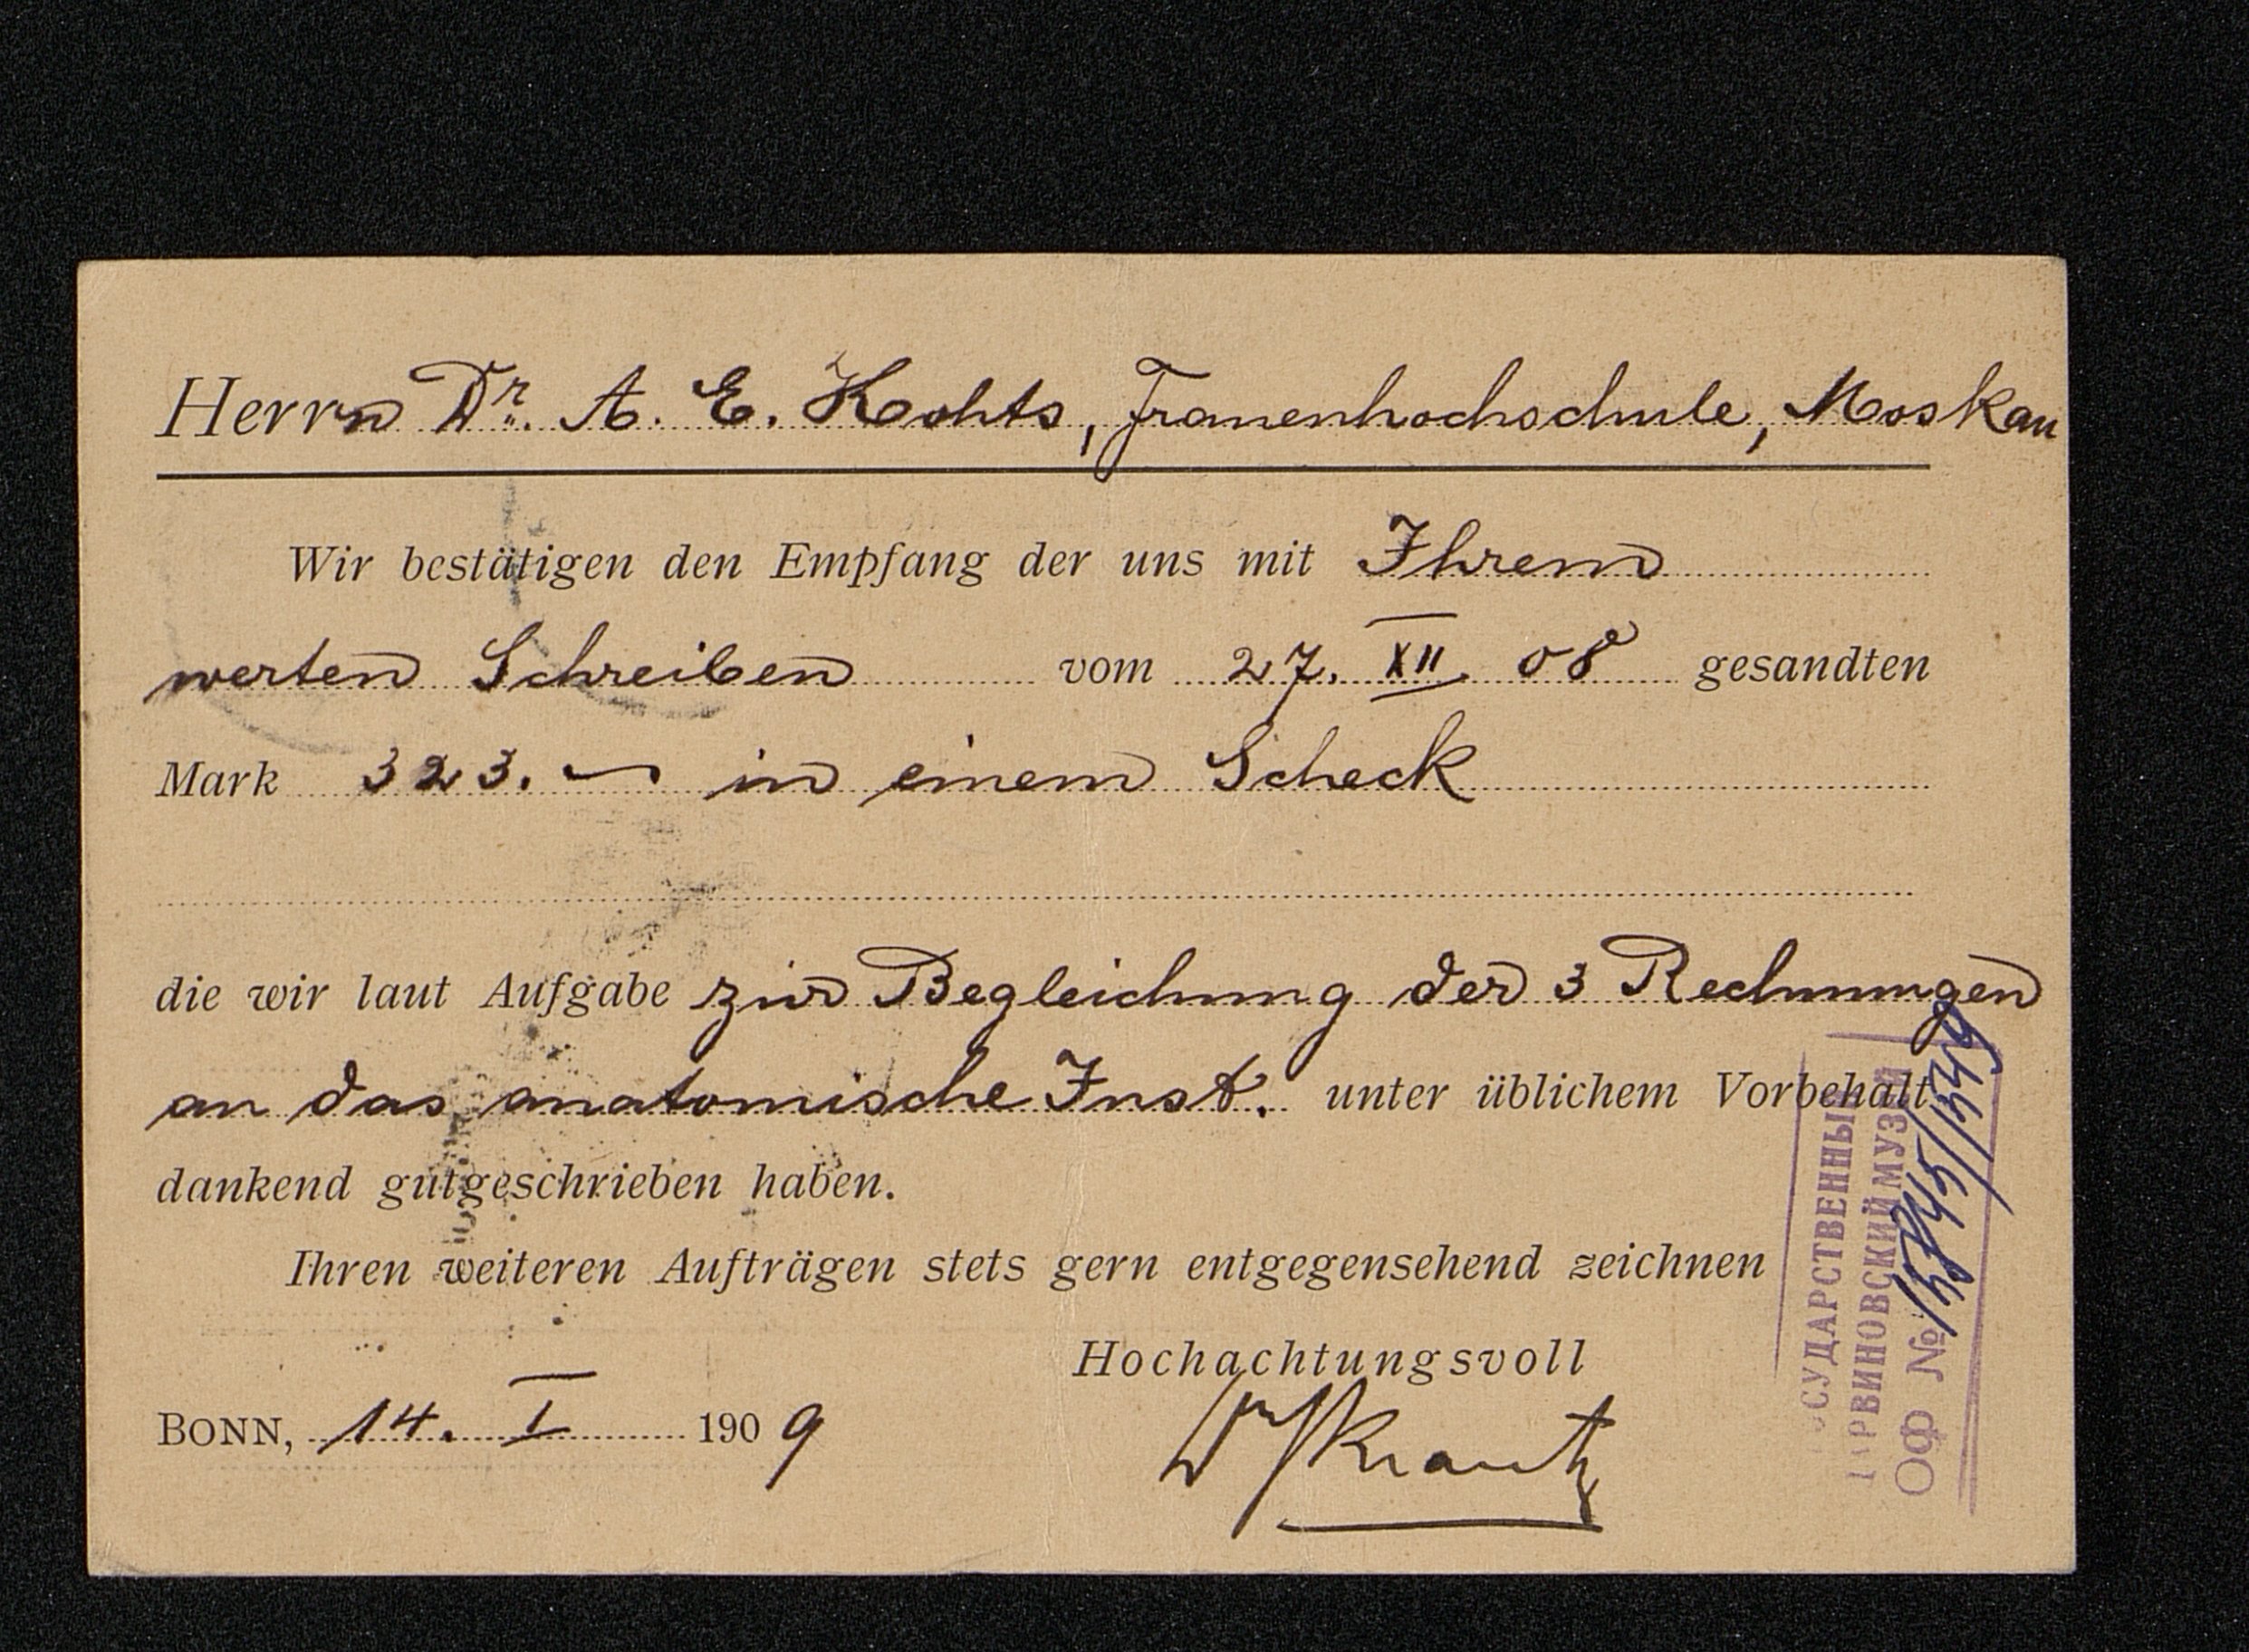 Herrn Dr. A. E. Kohts, Frauenhochschule, Moskau
Wir bestätigen den Empfang der uns mit Ihrem
werten Schreiben vom 27. XII. 08 gesandten
Mark 323. — in einem Scheck
die wir laut Aufgabe zur Begleichung der 3 Rechnungen
an das anatomische Inst. unter üblichem Vorbehalt
dankend gutgeschrieben haben.
Ihren weiteren Aufträgen stets gern entgegensehend zeichnen
Hochachtungsvoll
BONN, 14. I 1909
Krantz
ГОСУДАРСТВЕННЫЙ
ДАРВИНОВСКИЙ МУЗЕЙ
ОФ №